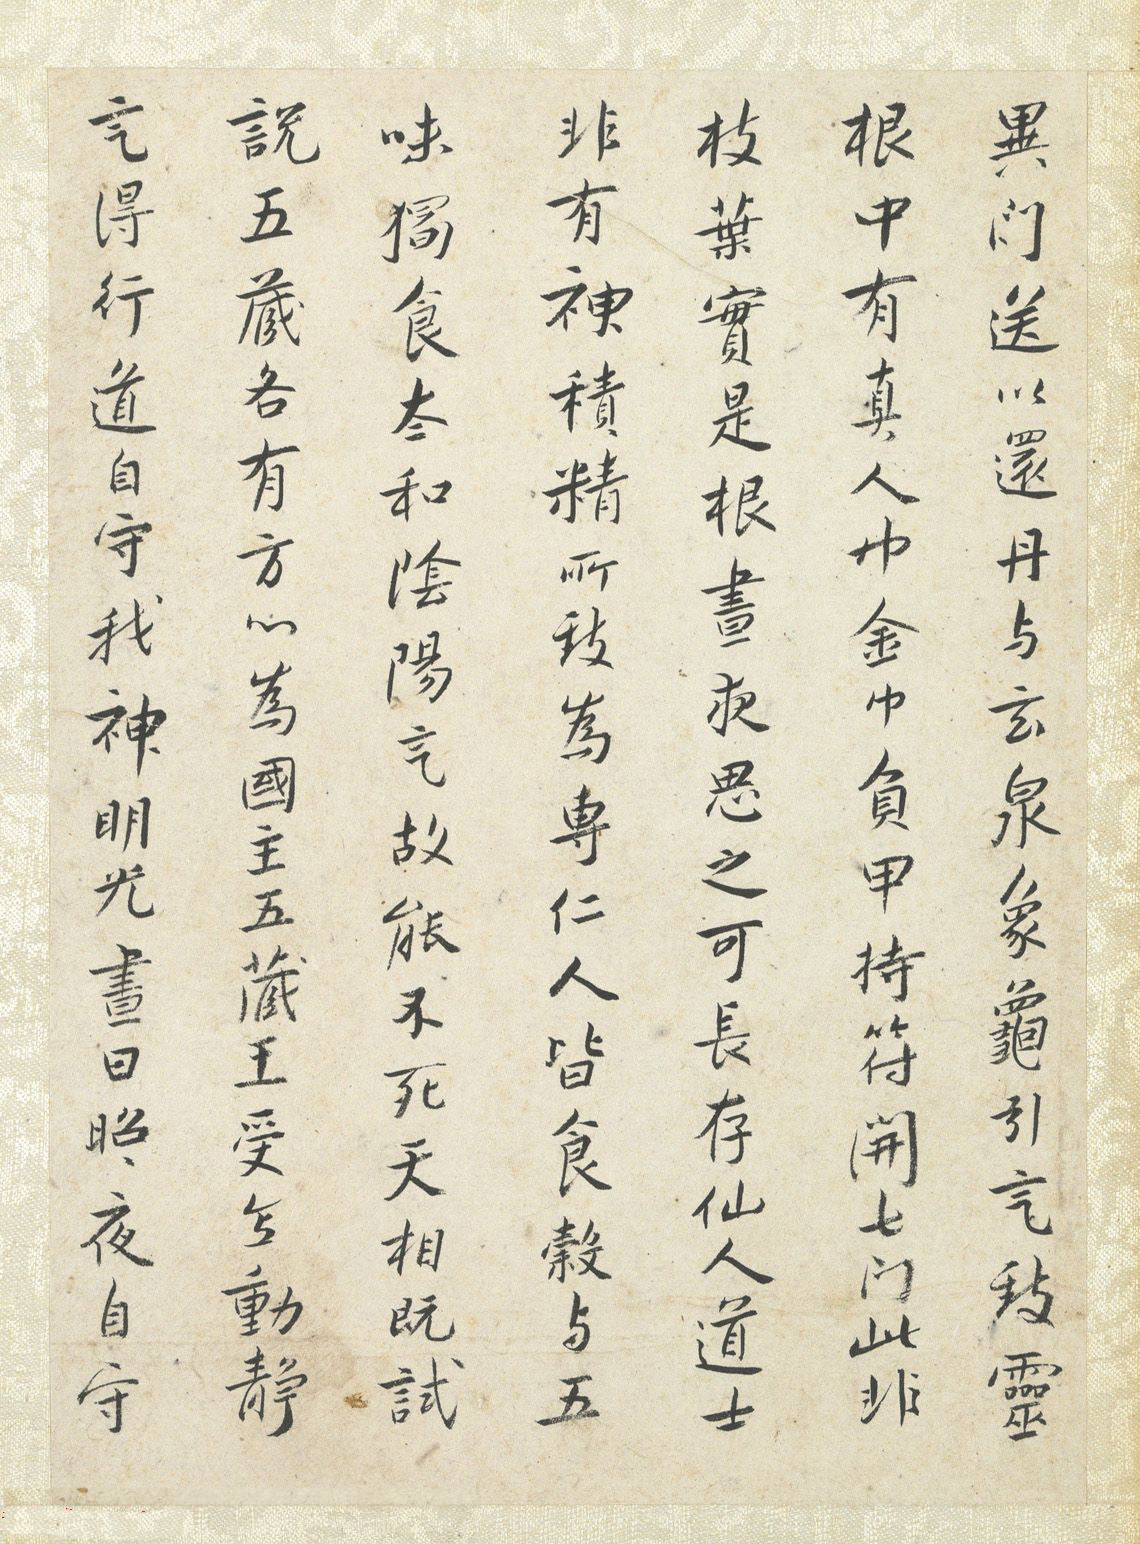 異門送以還丹与玄泉象龜引氣致靈
根中有真人巾金巾負甲持符開七門此非
枝葉實是根晝夜思之可長存仙人道士
非有神積精所致為專仁人皆食穀与五
味獨食太和陰陽氣故能不死天相既試
說五藏各有方心為國主五藏王受意動靜
氣得行道自守我神明光晝日照照夜自守